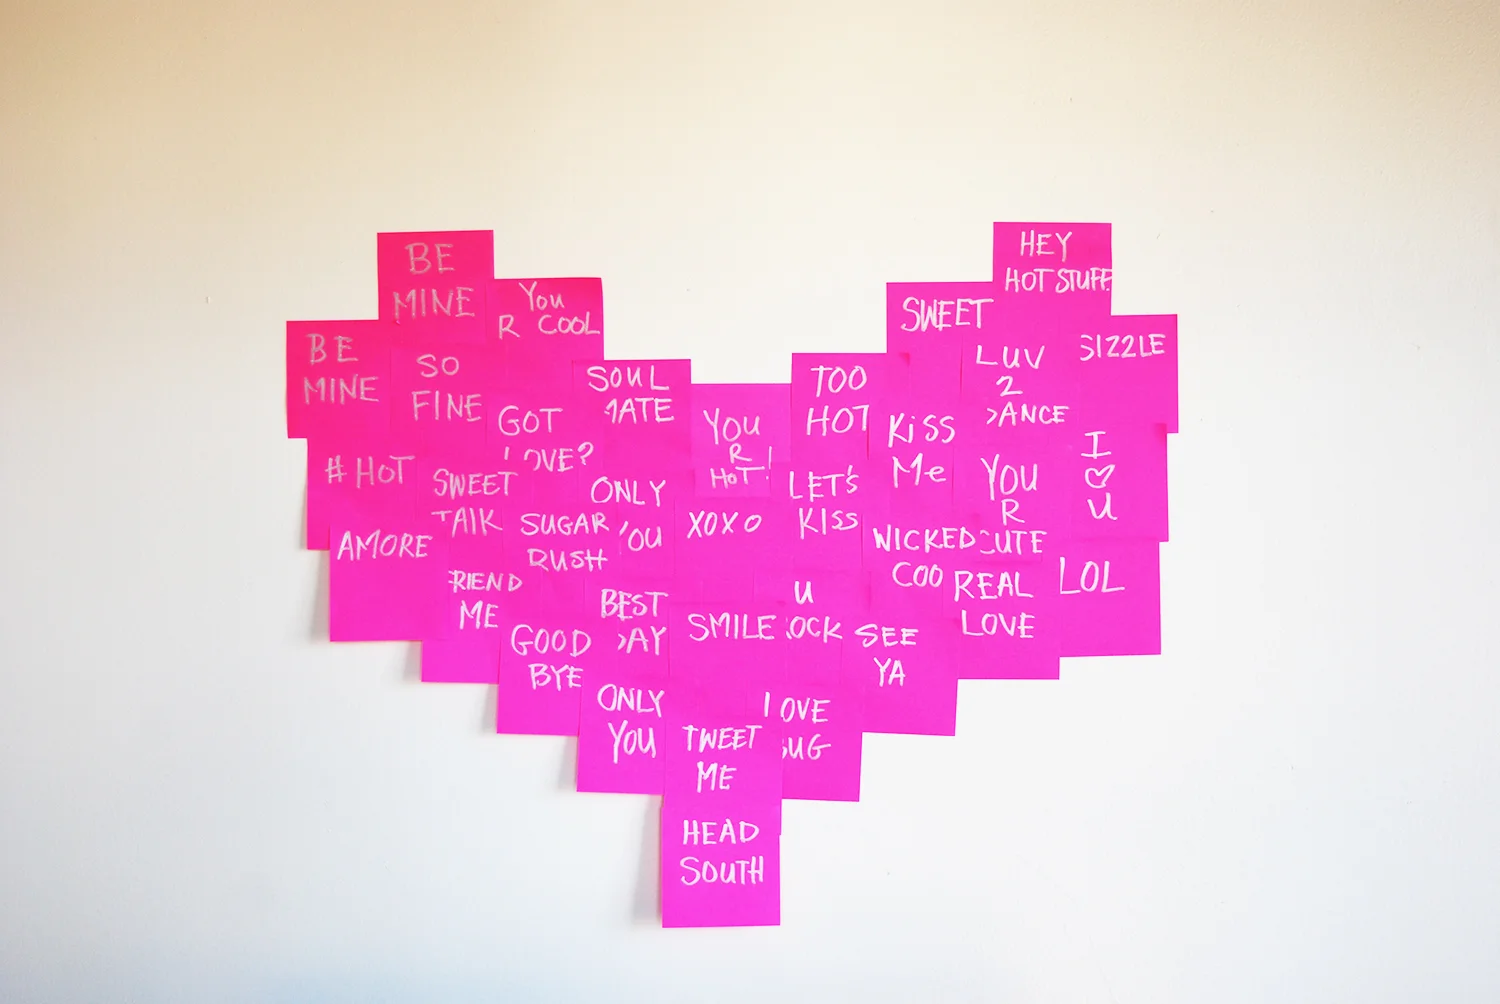 BE
MINE
You
R COOL
BE
MINE
SO
FINE
SOUL
MATE
GOT
LOVE?
YOU
R
HOT!
TOO
HOT
SWEET
HEY
HOT STUFF
LUV
2
DANCE
SIZZLE
KiSS
Me
I
♡
U
# HOT
SWEET
TALK
ONLY
YOU
XOXO
LET'S
KISS
YOU
R
CUTE
AMORE
SUGAR
RUSH
WICKED
COO
REAL
LOVE
LOL
FRIEND
ME
BEST
DAY
SMILE
U
ROCK
SEE
YA
GOOD
BYE
ONLY
YOU
TWEET
ME
LOVE
BUG
HEAD
SOUTH